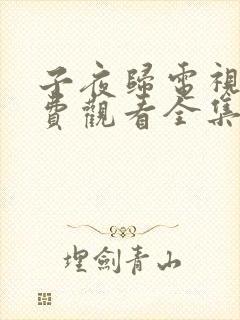 子夜歸電視
費觀看全集
埋劍青山